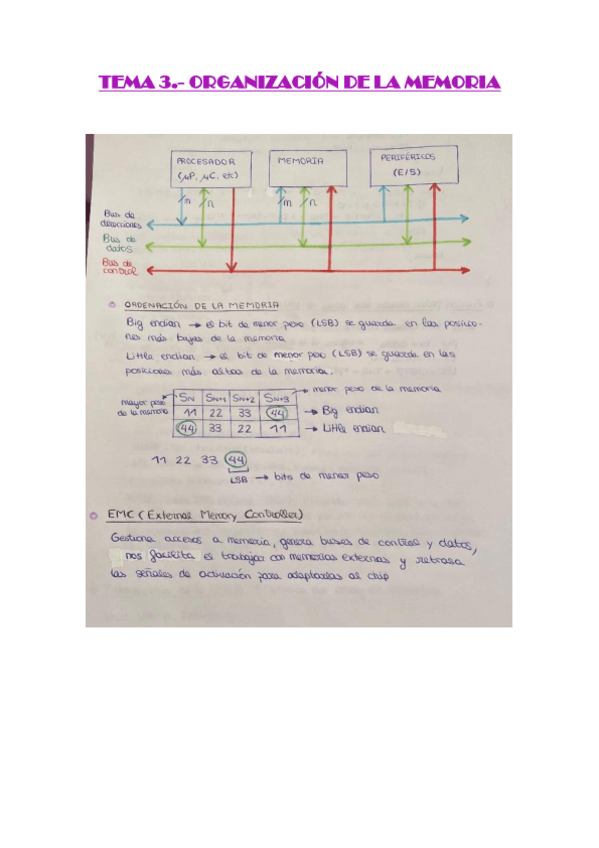 TEMA 3.- ORGANIZACIÓN DE LA MEMORIA
PROCESADOR
(μP, μC, etc)
MEMORIA
PERIFÉRICOS
(E/S)
n n m n
Bus de
direcciones
Bus de
datos
Bus de
control
ORDENACIÓN DE LA MEMORIA
Big endian → el bit de menor peso (LSB) se guarda en las posicio-
nes más bajas de la memoria
Little endian → el bit de menor peso (LSB) se guarda en las
posiciones más altas de la memoria.
→ menor peso de la memoria
mayor peso
de la memoria
SN SN+1 SN+2 SN+3
11 22 33 44 → Big endian
44 33 22 11 → Little endian
11 22 33 44
LSB → bits de menor peso
EMC (External Memory Controller)
Gestiona accesos a memoria, genera buses de control y datos,
nos facilita el trabajar con memorias externas y retrasa
las señales de actuación para adaptarlas al chip